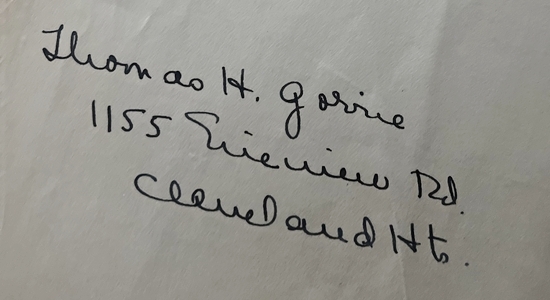 Thomas H. Gorrie
1155 Erieview Rd.
Cleveland Hts.